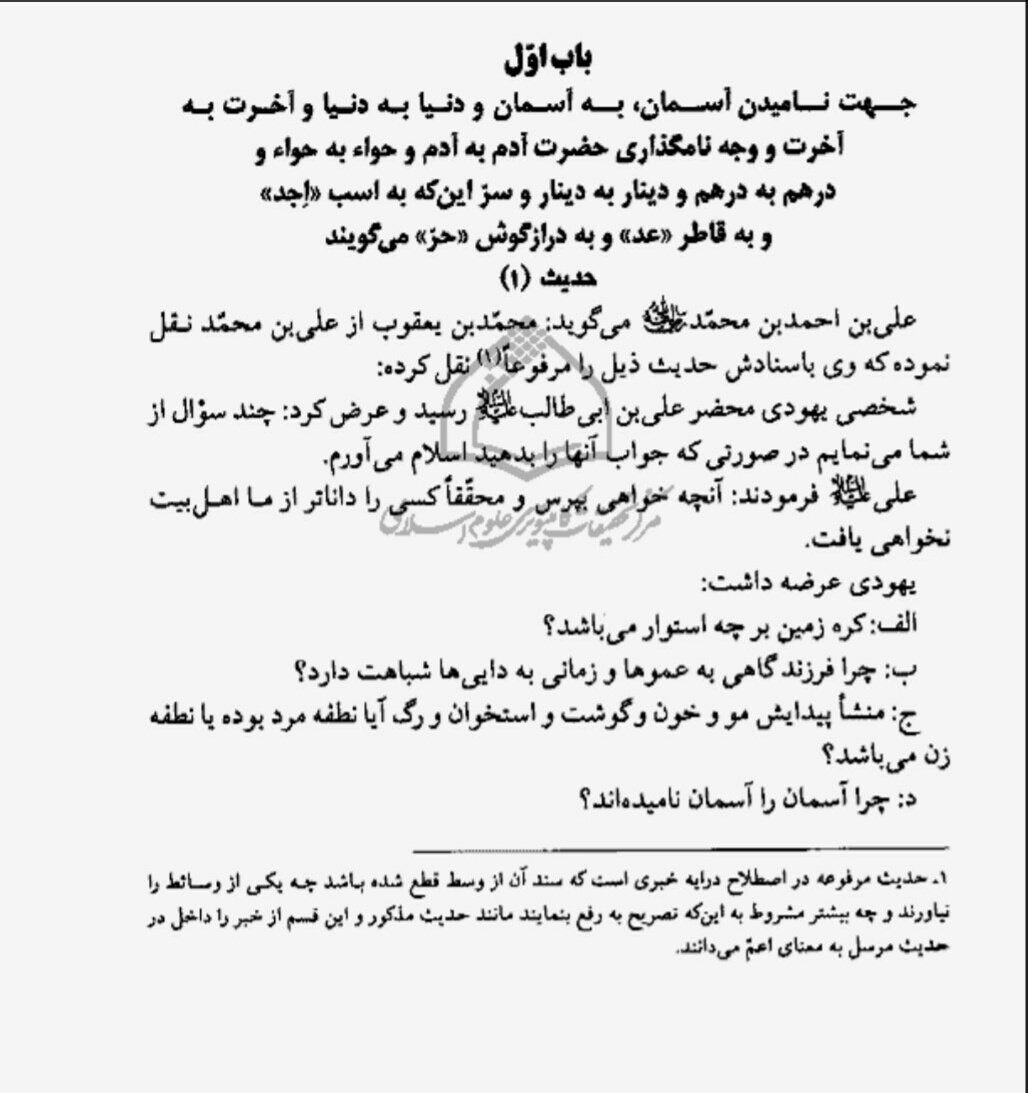 باب اوّل
جهت نامیدن آسمان، به آسمان و دنیا به دنیا و آخرت به
آخرت و وجه نامگذاری حضرت آدم به آدم و حواء به حواء و
درهم به درهم و دینار به دینار و سرّ این‌که به اسب «اِجد»
و به قاطر «عد» و به درازگوش «حرّ» می‌گویند
حدیث (۱)
علی‌بن احمدبن محمّد می‌گوید: محمّدبن یعقوب از علی‌بن محمّد نقل
نموده که وی باسنادش حدیث ذیل را مرفوعاً(۱) نقل کرده:
شخصی یهودی محضر علی‌بن ابی‌طالب علیه‌السلام رسید و عرض کرد: چند سؤال از
شما می‌نمایم در صورتی که جواب آنها را بدهید اسلام می‌آورم.
علی علیه‌السلام فرمودند: آنچه خواهی بپرس و محقّقاً کسی را داناتر از ما اهل‌بیت
نخواهی یافت.
یهودی عرضه داشت:
الف: کره زمین بر چه استوار می‌باشد؟
ب: چرا فرزند گاهی به عموها و زمانی به دایی‌ها شباهت دارد؟
ج: منشأ پیدایش مو و خون و گوشت و استخوان و رگ آیا نطفه مرد بوده یا نطفه
زن می‌باشد؟
د: چرا آسمان را آسمان نامیده‌اند؟
۱ـ حدیث مرفوعه در اصطلاح درایه خبری است که سند آن از وسط قطع شده باشد چه یکی از وسائط را
نیاورند و چه بیشتر مشروط به این‌که تصریح به رفع بنمایند مانند حدیث مذکور و این قسم از خبر را داخل در
حدیث مرسل به معنای اعمّ می‌دانند.
مرکز تحقیقات کامپیوتری علوم اسلامی